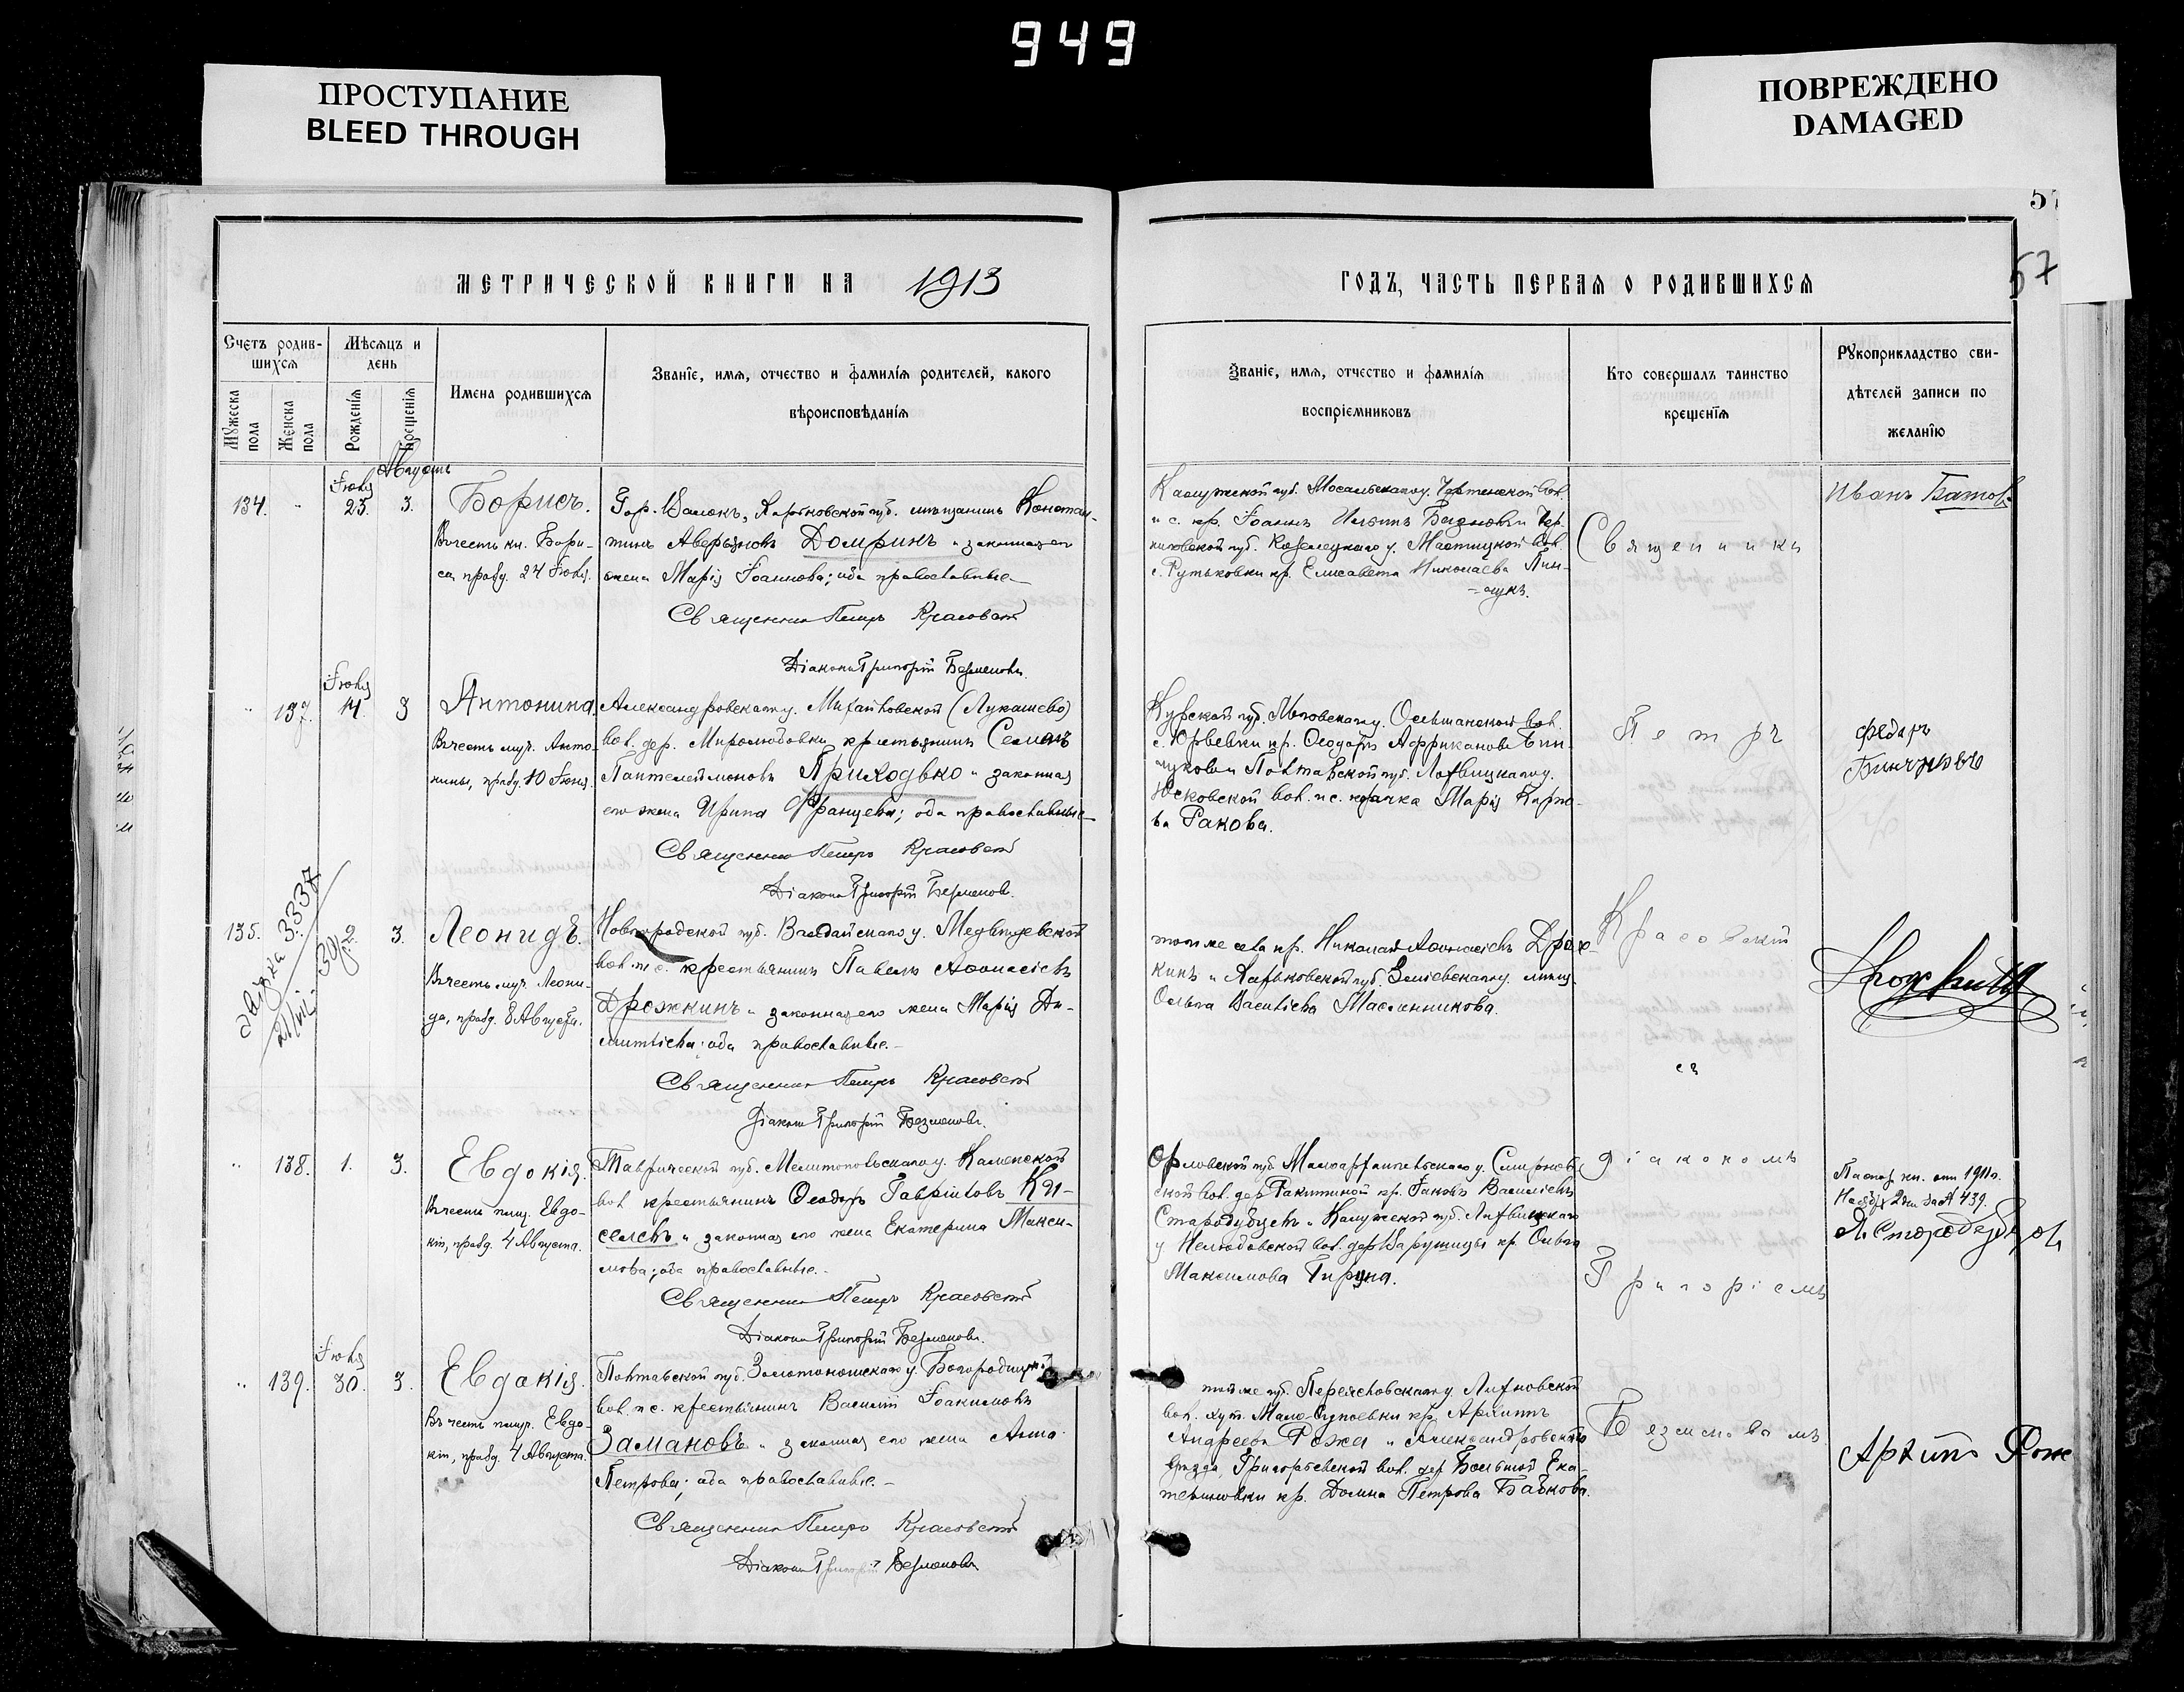 949
ПРОСТУПАНИЕ
BLEED THROUGH
ПОВРЕЖДЕНО
DAMAGED
57
57
МЕТРИЧЕСКОЙ КНИГИ НА 1913
ГОДЪ, ЧАСТЬ ПЕРВАЯ О РОДИВШИХСЯ
Счетъ родив-
шихся
Мѣсяцъ и
день
Мужеска пола
Женска пола
Рожденія
Крещенія
Имена родившихся
Званіе, имя, отчество и фамилія родителей, какого
вѣроисповѣданія
Званіе, имя, отчество и фамилія
воспріемниковъ
Кто совершалъ таинство
крещенія
Рукоприкладство сви-
дѣтелей записи по
желанію
Августъ
Іюля
134. 23. 3. Борисъ.
Въ честь кн. Бори-
са, празд. 24 Іюля.
Гор. Валокъ, Харьковской губ. мѣщанинъ Констан-
тинъ Аверьяновъ Домринъ и законная его
жена Марія Іоаннова; оба православные.
Священникъ Петръ Красовскій
Діаконъ Григорій Безменовъ.
Калужской губ. Мосальскаго у. вол.
и с. кр. Іоаннъ Ильинъ и Чер-
ниговской губ. Козелецкаго у. вол.
с. кр. Елисавета Николаева Пин-
чукъ.
Священники
Иванъ Батов
Іюля
137. 14. 3 Антонина.
Въ честь муч. Анто-
нины, празд. 10 Іюня.
Александровскаго у. Михайловской (Лукашево)
вол. дер. Миролюбовки крестьянинъ Семенъ
Пантелеймоновъ Приходько и законная
его жена Ирина Францева; оба православные
Священникъ Петръ Красовскій
Діаконъ Григорій Безменовъ.
Курской губ. Льговскаго у. Ольшанской вол.
с. Юрьевки кр. Ѳеодоръ Африкановъ Бин-
чуковъ и Полтавской губ. Лохвицкаго у.
вол. и с. казачка Марія Карпо-
ва Ракова.
Петръ
Федаръ
135. 2. 3. Леонидъ.
Въ честь муч. Леони-
да, празд. 8 Августа.
3337
Новгородской губ. Валдайскаго у. Медвѣдевской
вол. и с. крестьянинъ Павелъ Аѳанасіевъ
Дрожжинъ и законная его жена Марія Ди-
митріева; оба православные.
Священникъ Петръ Красовскій
Діаконъ Григорій Безменовъ.
того же села кр. Николай Аѳанасіевъ Дрож-
жинъ и Харьковской губ. Зміевскаго у. мѣщ.
Ольга Василіева Масленникова.
Красовскій
съ
138. 1. 3. Евдокія.
Въ честь пмуч. Евдо-
кіи, празд. 4 Августа.
Таврической губ. Мелитопольскаго у. Каменской
вол. крестьянинъ Ѳеодоръ Гавріиловъ Ки-
селевъ и законная его жена Екатерина Макси-
мова; оба православные.
Священникъ Петръ Красовскій
Діаконъ Григорій Безменовъ.
Орловской губ. Малоархангельскаго у.
вол. дер. Ракитиной кр. Іаковъ Василіевъ
Стародубцевъ и Калужской губ. Лихвинскаго
у. вол. дер. кр. Ольга
Максимова
діакономъ
Григоріемъ
Паспор. кн. отъ 1911 г.
за № 439.
Іюля
139. 30. 3. Евдакія.
Въ честь пмуч. Евдо-
кіи, празд. 4 Августа.
Полтавской губ. Золотоношскаго у.
вол. и с. крестьянинъ Василій Іоакимовъ
Замановъ и законная его жена Анна
Петрова; оба православные.
Священникъ Петръ Красовскій
Діаконъ Григорій Безменовъ
той же губ. Переяславскаго у.
вол. хут. кр. Архипъ
Андреевъ Рожа и Александровскаго
уѣзда, Григорьевской вол. дер. Большой Ека-
териновки кр. Домна Петрова Бабкова.
Безменовымъ
Архипъ Рож